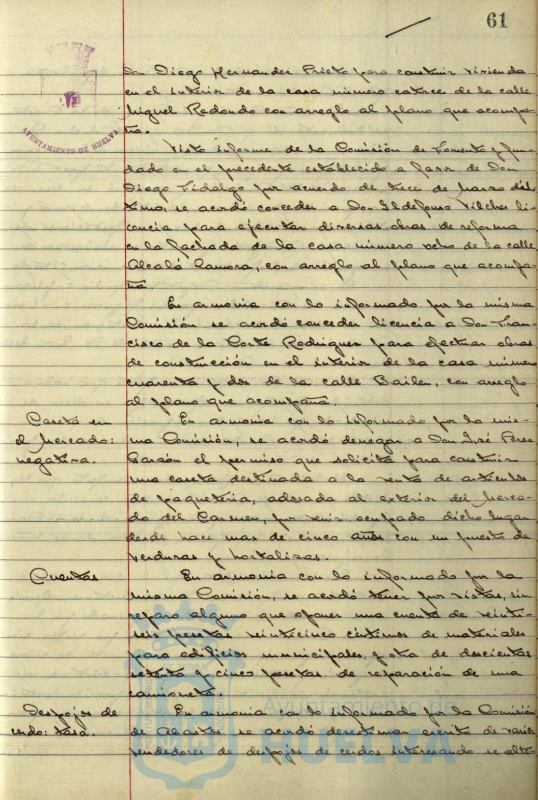 61
AYUNTAMIENTO DE HUELVA
Don Diego Hernandez Prieto para construir vivienda
en el interior de la casa número catorce de la calle
Miguel Redondo con arreglo al plano que acompa-
ña.
Visto informe de la Comisión de Fomento y fun-
dado en el precedente establecido a favor de Don
Diego Fidalgo por acuerdo de trece de Marzo úl-
timo, se acordó conceder a Don Ildefonso Vilches li-
cencia para ejecutar diversas obras de reforma
en la fachada de la casa número ocho de la calle
Alcalá Zamora, con arreglo al plano que acompa-
ña.
En armonia con lo informado por la misma
Comisión se acordó conceder licencia a Don Fran-
cisco de la Corte Rodriguez para efectuar obras
de construcción en el interior de la casa número
cuarenta y dos de la calle Bailen, con arreglo
al plano que acompaña.
Caseta en
el Mercado:
negativa.
En armonia con lo informado por la mis-
ma Comisión, se acordó denegar a Don José Perez
Garzón el permiso que solicita para construir
una caseta destinada a la venta de articulos
de paqueteria, adosada al exterior del Merca-
do del Carmen, por venir ocupado dicho lugar
desde hace mas de cinco años con un puesto de
verduras y hortalizas.
Cuentas
En armonia con lo informado por la
misma Comisión, se acordó tener por vistas, sin
reparo alguno que oponer una cuenta de veinti-
seis pesetas veinticinco céntimos de materiales
para edificios municipales, y otra de doscientas
setenta y cinco pesetas de reparación de una
camioneta.
Despojos de
cerdo: tasa.
En armonia con lo informado por la Comisión
de Abastos se acordó desestimar escrito de varios
vendedores de despojos de cerdos interesando se alte-
Ayuntamiento de
HUELVA